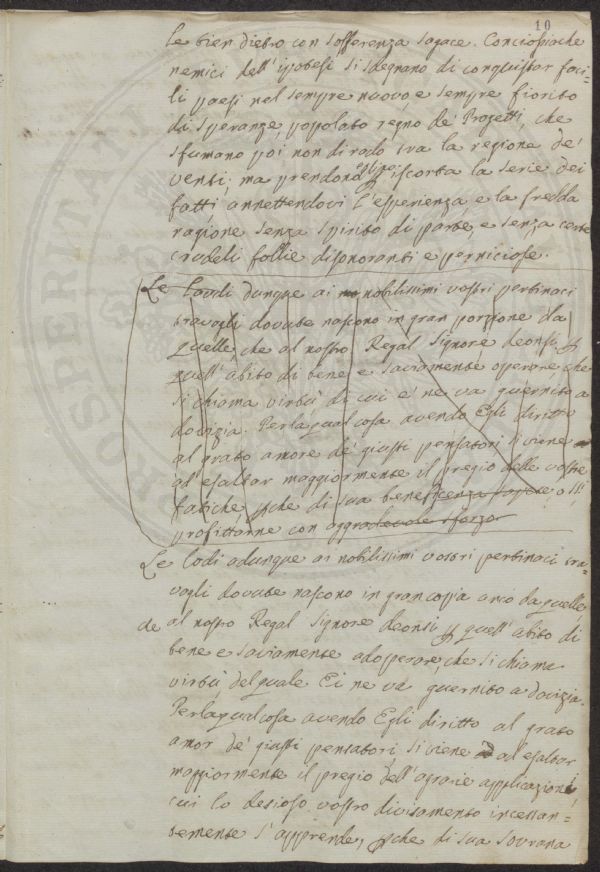 10
le tien dietro con sofferenza sagace. Conciosiache
nemici dell'ipotesi si sdegnano di conquistar faci=
li paesi nel sempre nuovo e sempre fiorito
di speranze, popolato regno de' Progetti, che
sfumano poi non di rado tra la regione de'
venti; ma prendono scorta la serie dei
fatti annettendovi l'esperienza, e la fredda
ragione senza spirito di parte, e senza certe
crudeli follie disonoranti e perniciose.
Le Laudi dunque ai nobilissimi vostri pertinaci
travagli dovute nascono in gran porzione da
quelle, che al nostro Regal Signore deonsi p
quell'abito di bene e saviamente operare che
si chiama virtù di cui e' ne va guernito a
dovizia. Perlaqualcosa avendo Egli diritto
al grato amore de' giusti pensatori si viene
ad esaltar maggiormente il pregio delle vostre
fatiche, pche di sua beneficenza
profittarne con aggradevole sforzo.
Le lodi adunque ai nobilissimi vostri pertinaci tra=
vagli dovute nascono in gran copia anco da quelle
de al nostro Regal Signore deonsi p quell'abito di
bene e saviamente adoperare, che si chiama
virtù del quale Ei ne va guernito a dovizia.
Perlaqualcosa avendo Egli diritto al grato
amor de' giusti pensatori, si viene ad esaltar
maggiormente il pregio dell'agrarie applicazioni
cui lo desioso vostro divisamento incessan=
temente s'apprende, pche di sua sovrana
PROSPERITATI